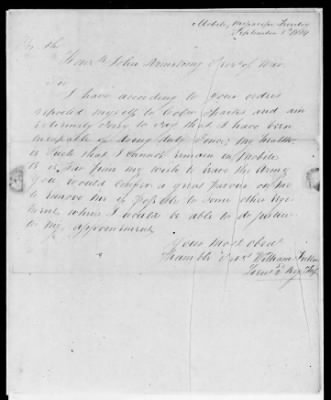 Mobile, Mississippi Territory
September 1st 1814
Honbl John Armstrong Sec of War
Sir
I have according to your orders
reported myself to Coln Sparks and am
extremely sorry to say that I have been
incapable of doing duty since; my health
is such that I cannot remain in Mobile
it is far from my wish to leave the Army
You would confer a great favour on me
to remove me if possible to some other Regi
ment, where I would be able to do justice
to my appointment
Yours most obedt
Humble Servt William